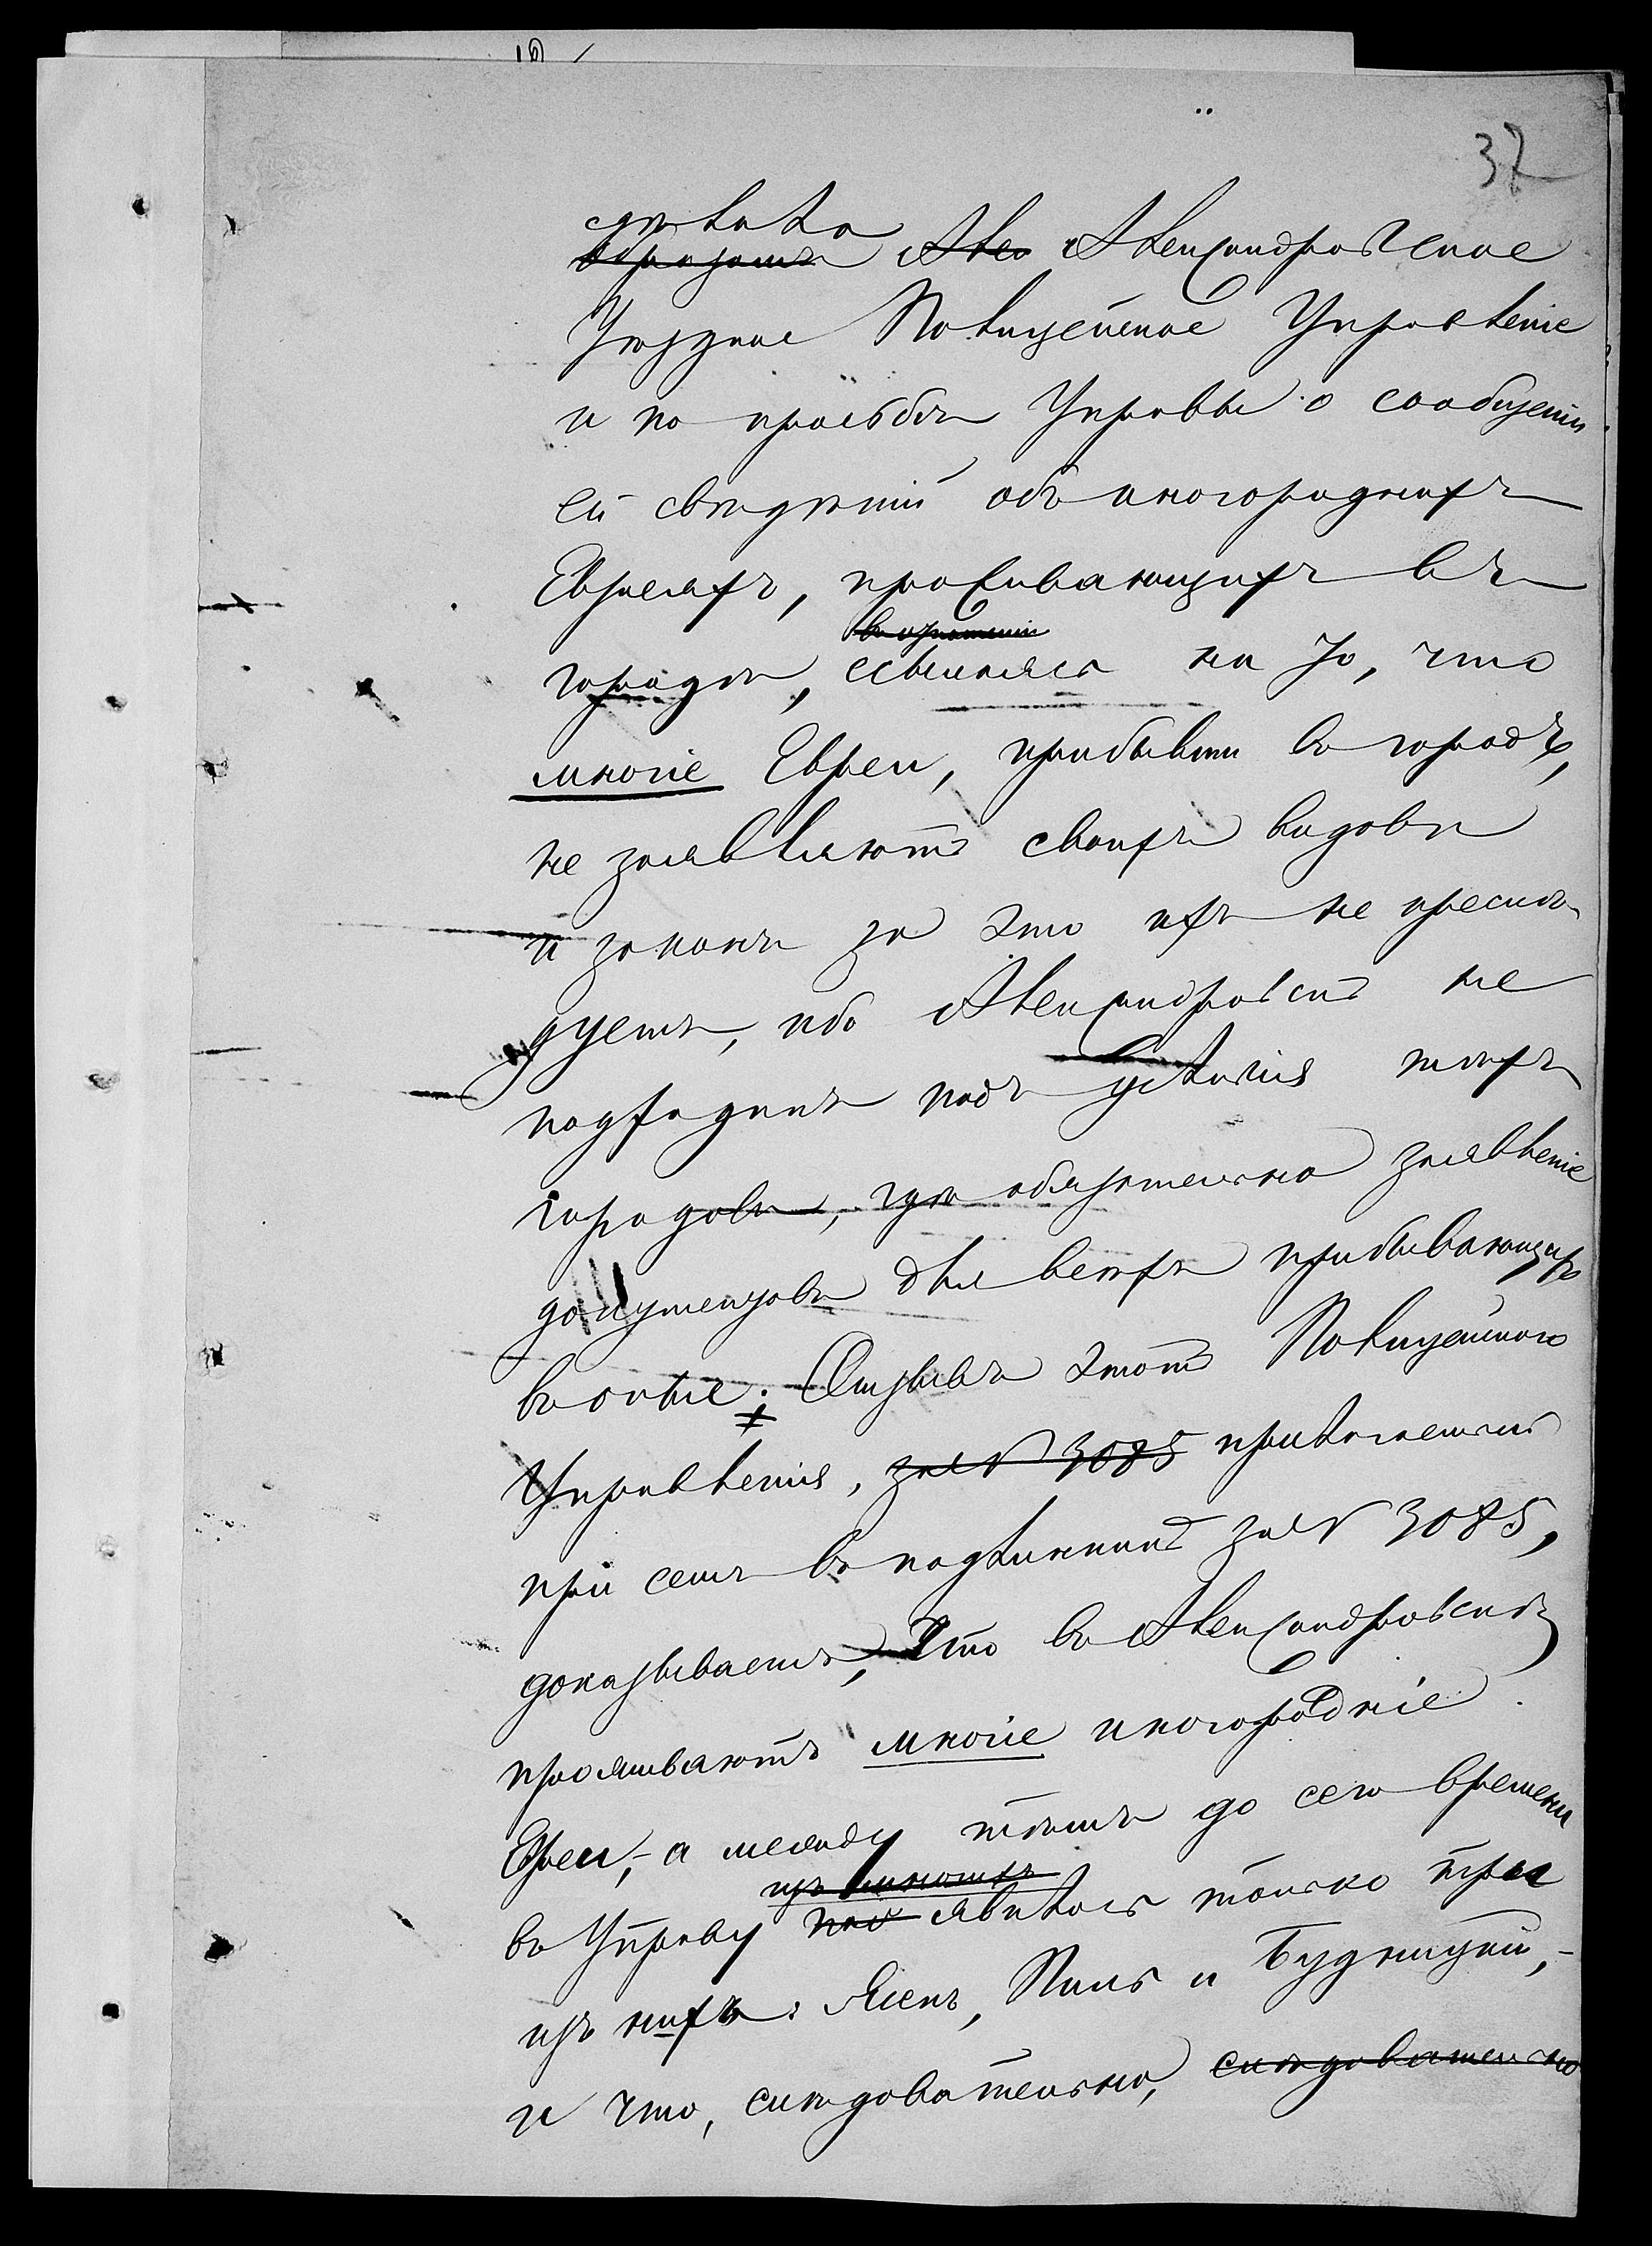 37
сдѣлало
образомъ Але Александровское
Уѣздное Полицейское Управленіе
и по просьбѣ Управы о сообщеніи
ей свѣдѣній объ иногороднихъ
Евреяхъ, проживающихъ въ
городѣ, ссылаясь на то, что
многіе Евреи, прибывши въ городъ,
не заявляютъ своихъ видовъ
и законъ за это ихъ не преслѣ-
дуетъ, ибо Александровскъ не
подходитъ подъ условія тѣхъ
городовъ, гдѣ обязательно заявленіе
документовъ для всѣхъ прибывающихъ
въ оные. Отзывъ этотъ Полицейского
Управленія, за № 3085 прилагаемый
при семъ въ подлинникѣ за № 3085,
доказываетъ, что въ Александровскѣ
проживаютъ многіе иногородніе
Евреи, а между тѣмъ до сего времени
изъ многихъ
въ Управу явилось только три
изъ нихъ: Ясенъ, Пиль и Будницкій,-
и что, слѣдовательно, слѣдовательно